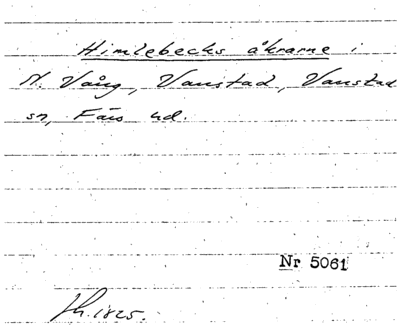 Himlebecks åkrarne i
N. Vång, Vanstad, Vanstad
sn, Färs hd.
Nr 5061
h. 1825.